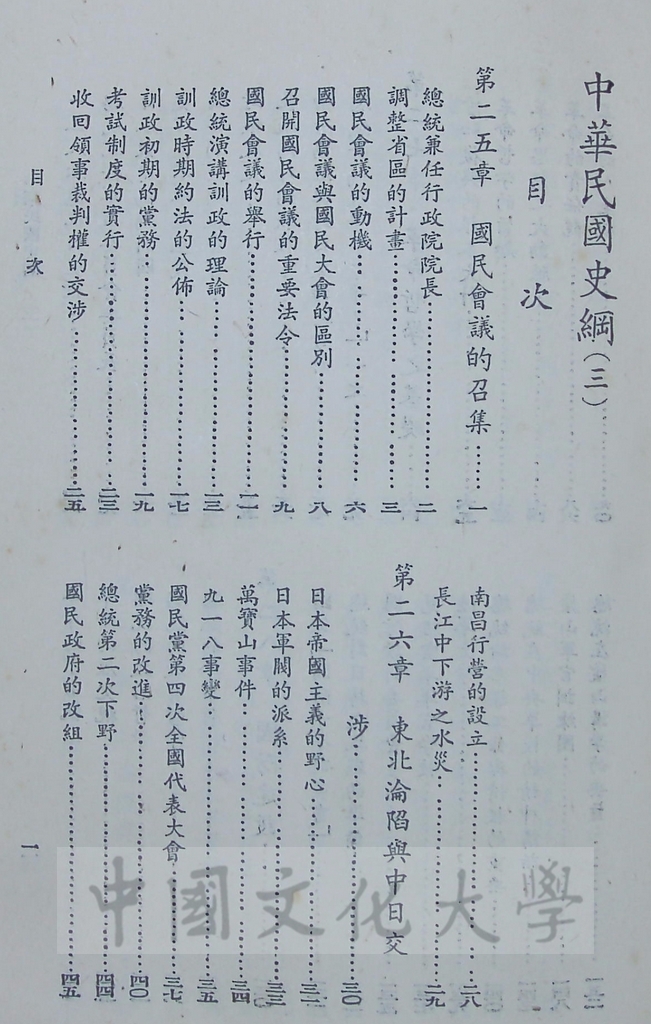 中華民國史綱(三)
目次
第二五章 國民會議的召集……一
總統兼任行政院院長……二
調整省區的計畫……三
國民會議的動機……六
國民會議與國民大會的區別……八
召開國民會議的重要法令……九
國民會議的舉行……一一
總統演講訓政的理論……一三
訓政時期約法的公佈……一七
訓政初期的黨務……一九
考試制度的實行……二三
收回領事裁判權的交涉……二五
南昌行營的設立……二八
長江中下游之水災……二九
第二六章 東北淪陷與中日交
涉……三〇
日本帝國主義的野心……三二
日本軍閥的派系……三三
萬寶山事件……三四
九一八事變……三五
國民黨第四次全國代表大會……三七
黨務的改進……四〇
總統第二次下野……四四
國民政府的改組……四五
目次
一
中國文化大學